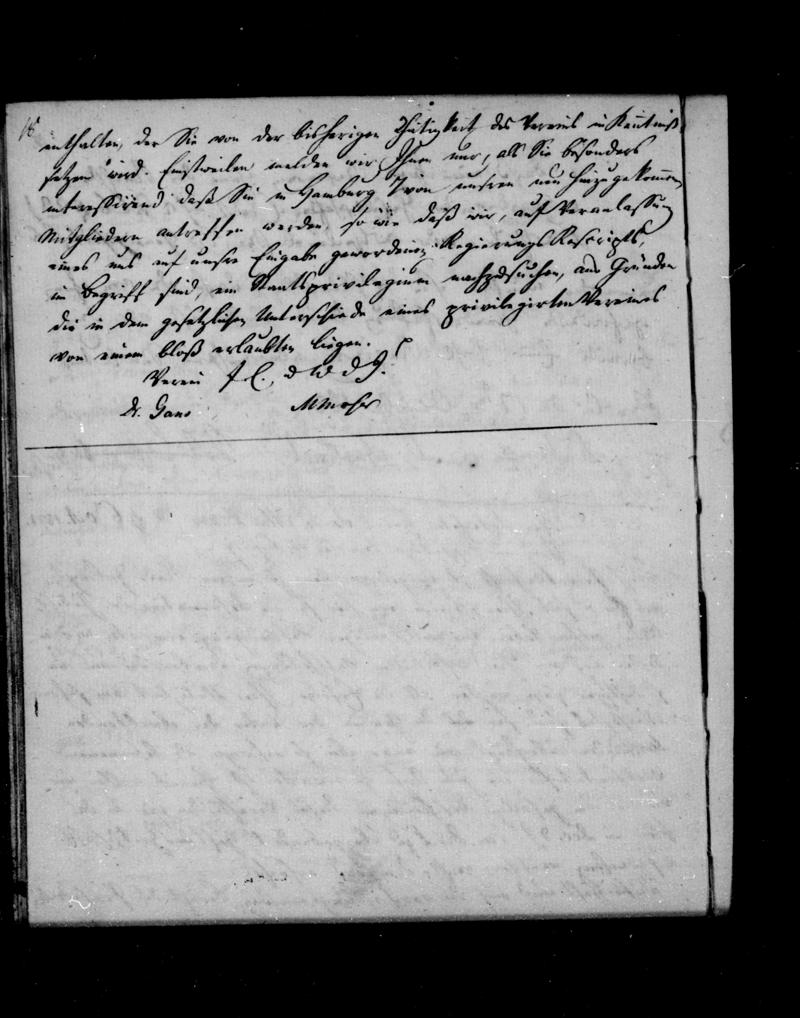 enthalten, der Sie von der bisherigen Thätigkeit des Vereins in Kentniß
setzen wird. Einstweilen melden wir Ihnen nur, als Sie besonders
interessirend daß Sie in Hamburg 7 von unsren neu hinzugekomnen
Mitgliedern antreffen werden, so wie daß wir, auf Veranlassung
eines uns auf unsre Eingabe gewordenen Regierungs Rescripts,
im Begriff sind, ein Staatsprivilegium nachzusuchen, aus Gründen
die in dem gesetzlichen Unterschiede eines privilegirten Vereines
von einem bloß erlaubten liegen.
Verein f C. u W d J.
Dr. Gans MMoser